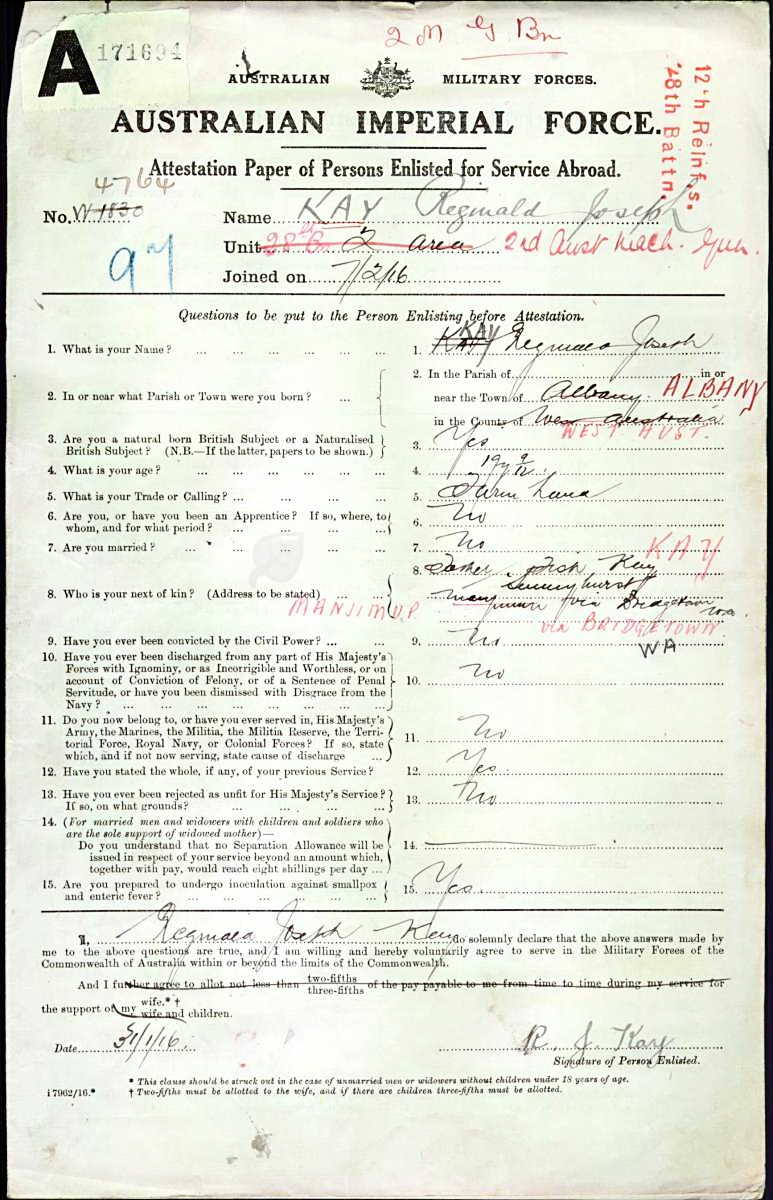 2 M G Bn
A 171694
AUSTRALIAN MILITARY FORCES.
12th Reinf.s.
28th Battn.
AUSTRALIAN IMPERIAL FORCE.
Attestation Paper of Persons Enlisted for Service Abroad.
4764
No. W 1830 Name KAY Reginald Joseph
97
Unit 28th Bn 2 area 2nd Aust Mach. Gun.
Joined on 7/2/16
Questions to be put to the Person Enlisting before Attestation.
1. What is your Name? ... 1. KAY Reginald Joseph
2. In the Parish of in or
2. In or near what Parish or Town were you born? ... near the Town of Albany. ALBANY
in the County of West Australia
WEST AUST.
3. Are you a natural born British Subject or a Naturalised
British Subject? (N.B.—If the latter, papers to be shown.) 3. Yes
4. What is your age? ... 4. 19 9/12.
5. What is your Trade or Calling? ... 5. Farm
6. Are you, or have you been an Apprentice? If so, where, to
whom, and for what period? ... 6. No
7. Are you married? ... 7. No
KAY
8. Father Kay
8. Who is your next of kin? (Address to be stated) ... via Bridgetown W.A.
MANJIMUP via BRIDGETOWN.
WA
9. Have you ever been convicted by the Civil Power? ... 9. No
10. Have you ever been discharged from any part of His Majesty's
Forces with Ignominy, or as Incorrigible and Worthless, or on
account of Conviction of Felony, or of a Sentence of Penal
Servitude, or have you been dismissed with Disgrace from the
Navy? ... 10. No
11. Do you now belong to, or have you ever served in, His Majesty's
Army, the Marines, the Militia, the Militia Reserve, the Terri-
torial Force, Royal Navy, or Colonial Forces? If so, state
which, and if not now serving, state cause of discharge ... 11. No
12. Have you stated the whole, if any, of your previous Service? 12. Yes.
13. Have you ever been rejected as unfit for His Majesty's Service?
If so, on what grounds? ... 13. No
14. (For married men and widowers with children and soldiers who
are the sole support of widowed mother)—
Do you understand that no Separation Allowance will be
issued in respect of your service beyond an amount which,
together with pay, would reach eight shillings per day ... 14.
15. Are you prepared to undergo inoculation against smallpox
and enteric fever? ... 15. Yes.
I, Reginald Joseph Kay do solemnly declare that the above answers made by
me to the above questions are true, and I am willing and hereby voluntarily agree to serve in the Military Forces of the
Commonwealth of Australia within or beyond the limits of the Commonwealth.
And I further agree to allot not less than two-fifths three-fifths of the pay payable to me from time to time during my service for
the support of my wife.* † wife and children.
Date 31/1/16. R. J. Kay
Signature of Person Enlisted.
* This clause should be struck out in the case of unmarried men or widowers without children under 18 years of age.
i 7962/16.* † Two-fifths must be allotted to the wife, and if there are children three-fifths must be allotted.